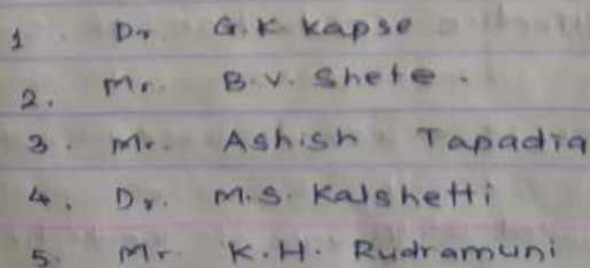 1 Dr G.K. Kapse
2. Mr. B.V. Shete.
3. Mr. Ashish Tapadia
4. Dr. M.S. Kalshetti
5. Mr K.H. Rudramuni